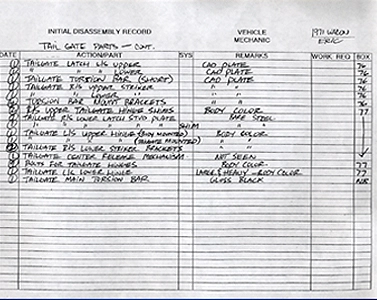 INITIAL DISASSEMBLY RECORD VEHICLE 1971
MECHANIC ERIC
TAIL GATE PARTS — CONT.
DATE ACTION/PART SYS REMARKS WORK REQ BOX
① TAILGATE LATCH L/S UPPER CAD PLATE 76
① " " " LOWER CAD PLATE 76
① TAILGATE TORSION BAR (SHORT) CAD PLATE 76
① TAILGATE R/S UPPER STRIKER " " 76
① " " LOWER " " " 76
② TORSION BAR MOUNT BRACKETS " " 76
R/S UPPER TAILGATE HINGE SHIMS BODY COLOR 77
TAILGATE R/S LOWER LATCH STUD PLATE BARE STEEL
" " " " " SHIM " "
① TAILGATE L/S UPPER HINGE (BODY MOUNTED) BODY COLOR
① " " " " (TAILGATE MOUNTED) " "
② TAILGATE R/S LOWER STRIKER BRACKETS
① TAILGATE CENTER RELEASE MECHANISM NOT SEEN
BOLTS FOR TAILGATE HINGES BODY COLOR 77
① TAILGATE L/S LOWER HINGE LARGE & HEAVY - BODY COLOR 77
① TAILGATE MAIN TORSION BAR GLOSS BLACK